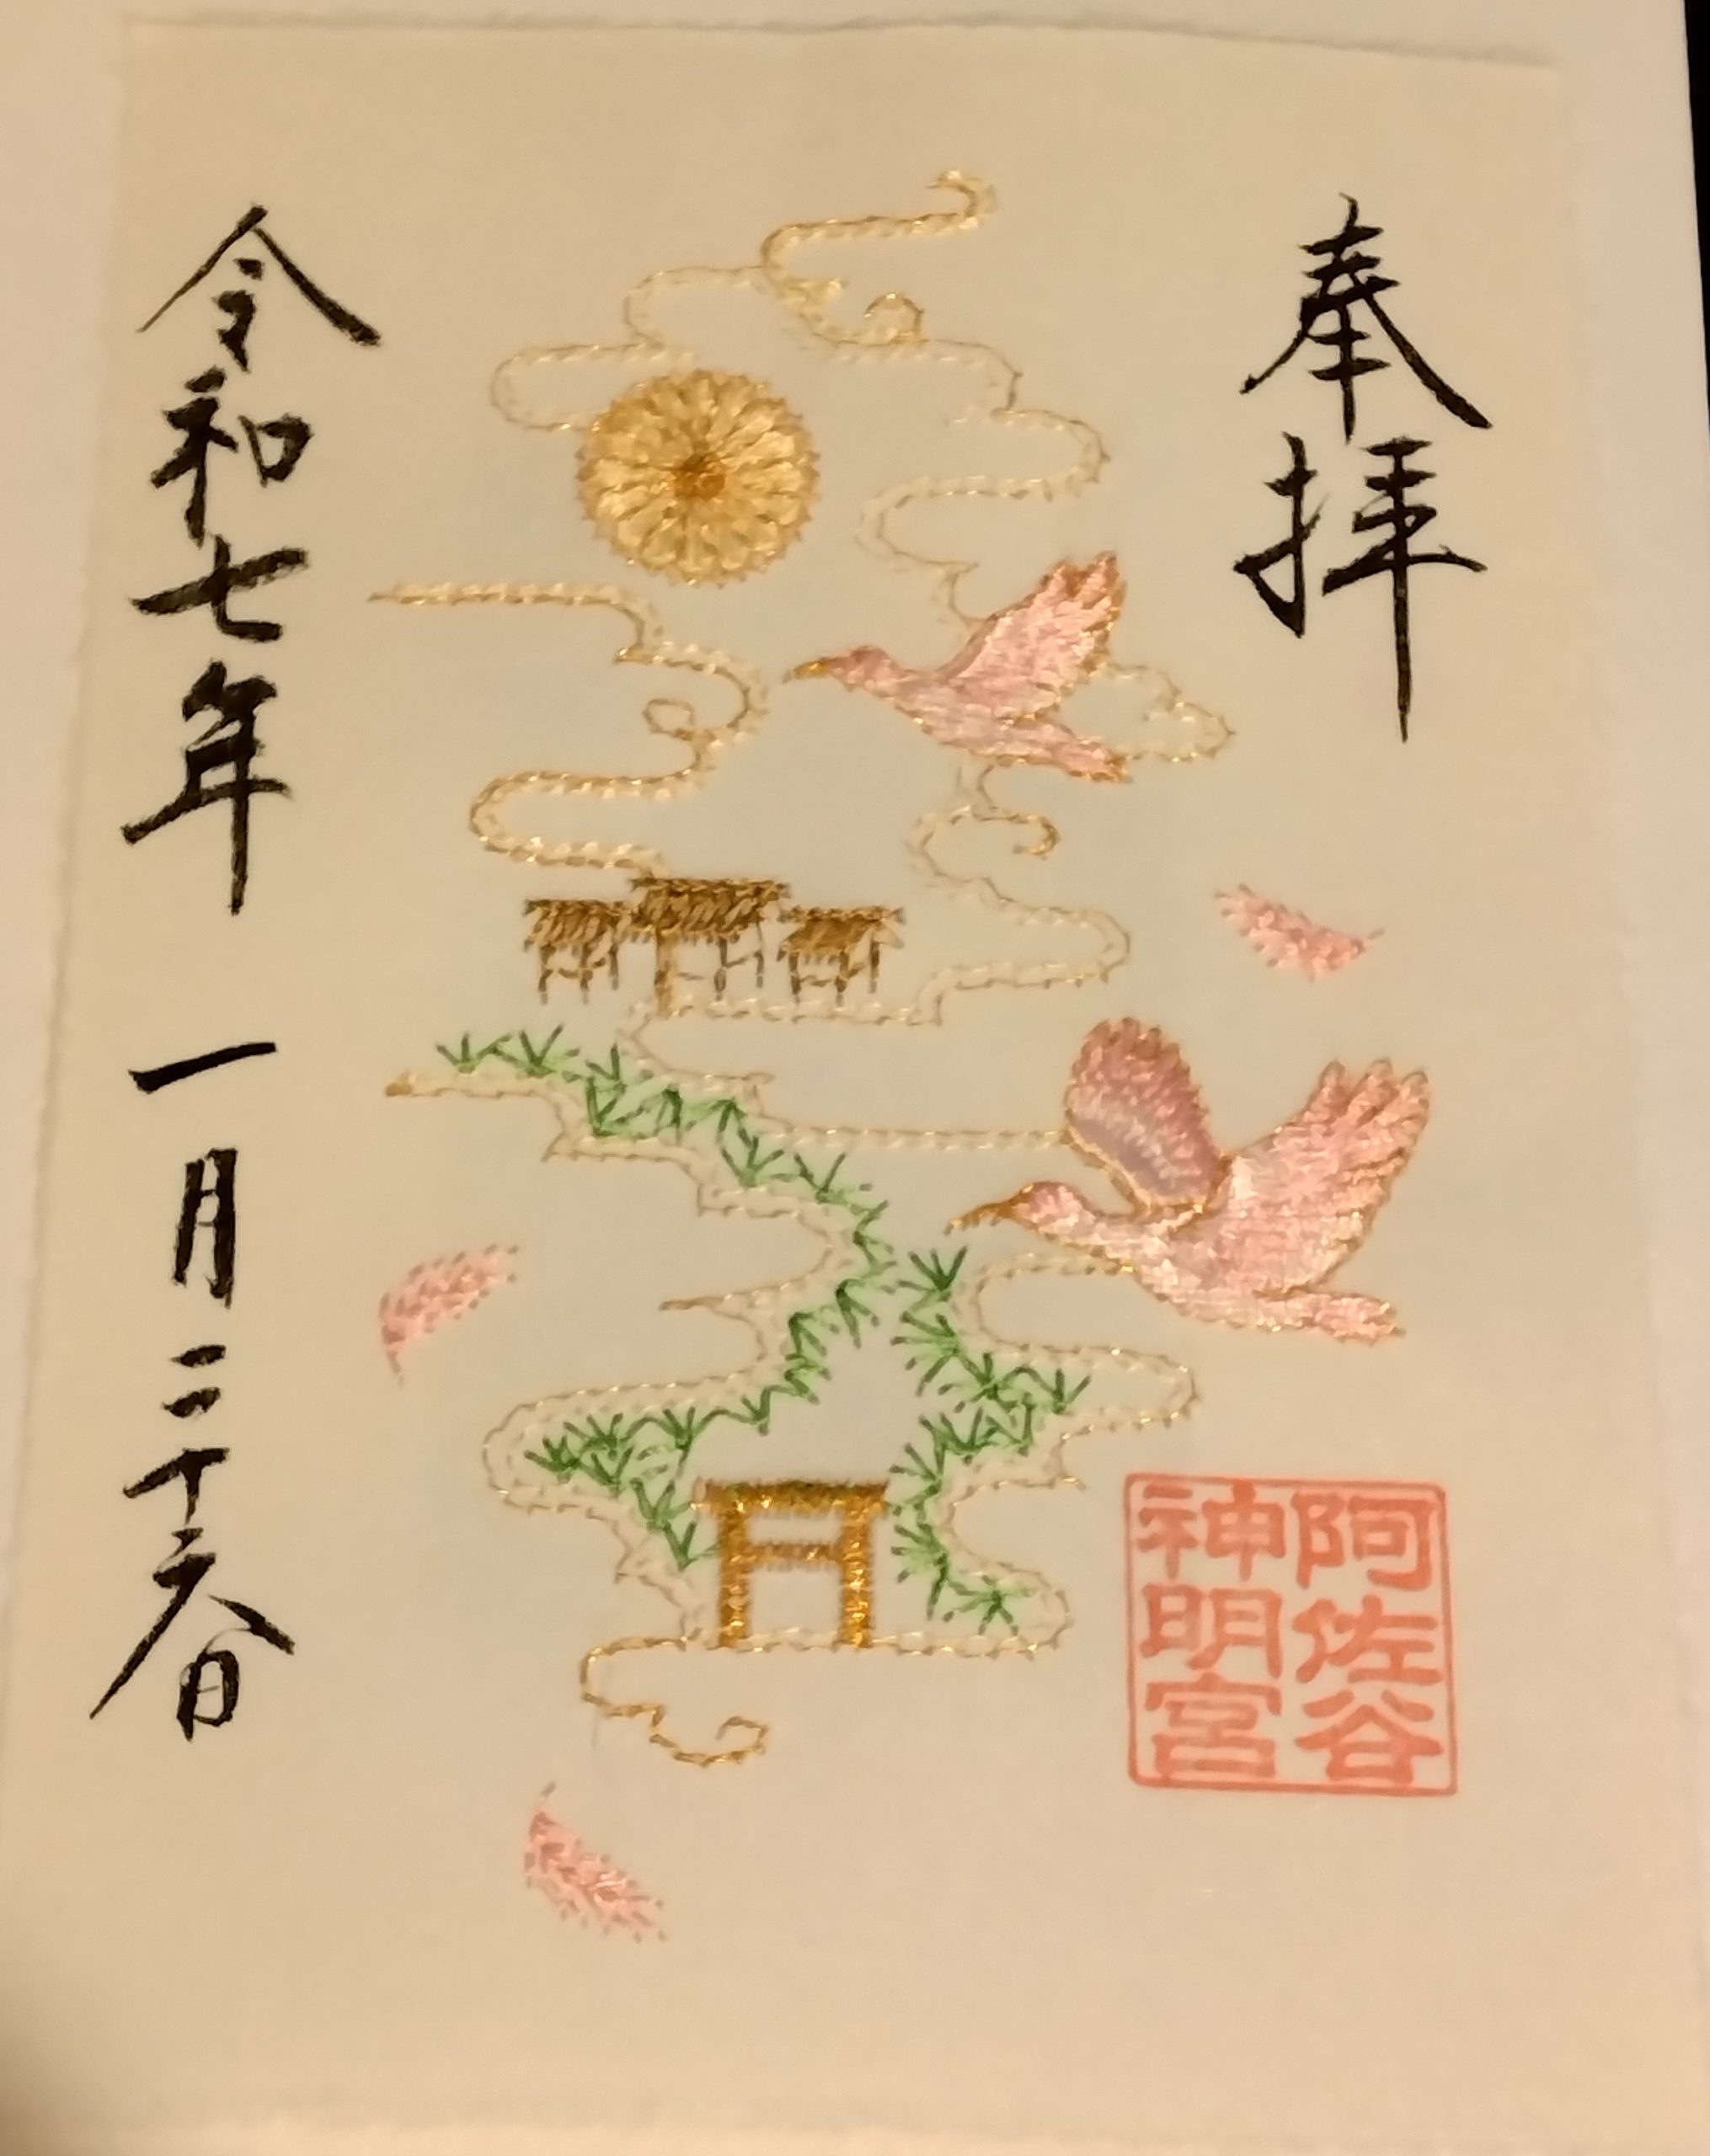 奉拝
阿佐谷
神明宮
令和七年 一月二十六日